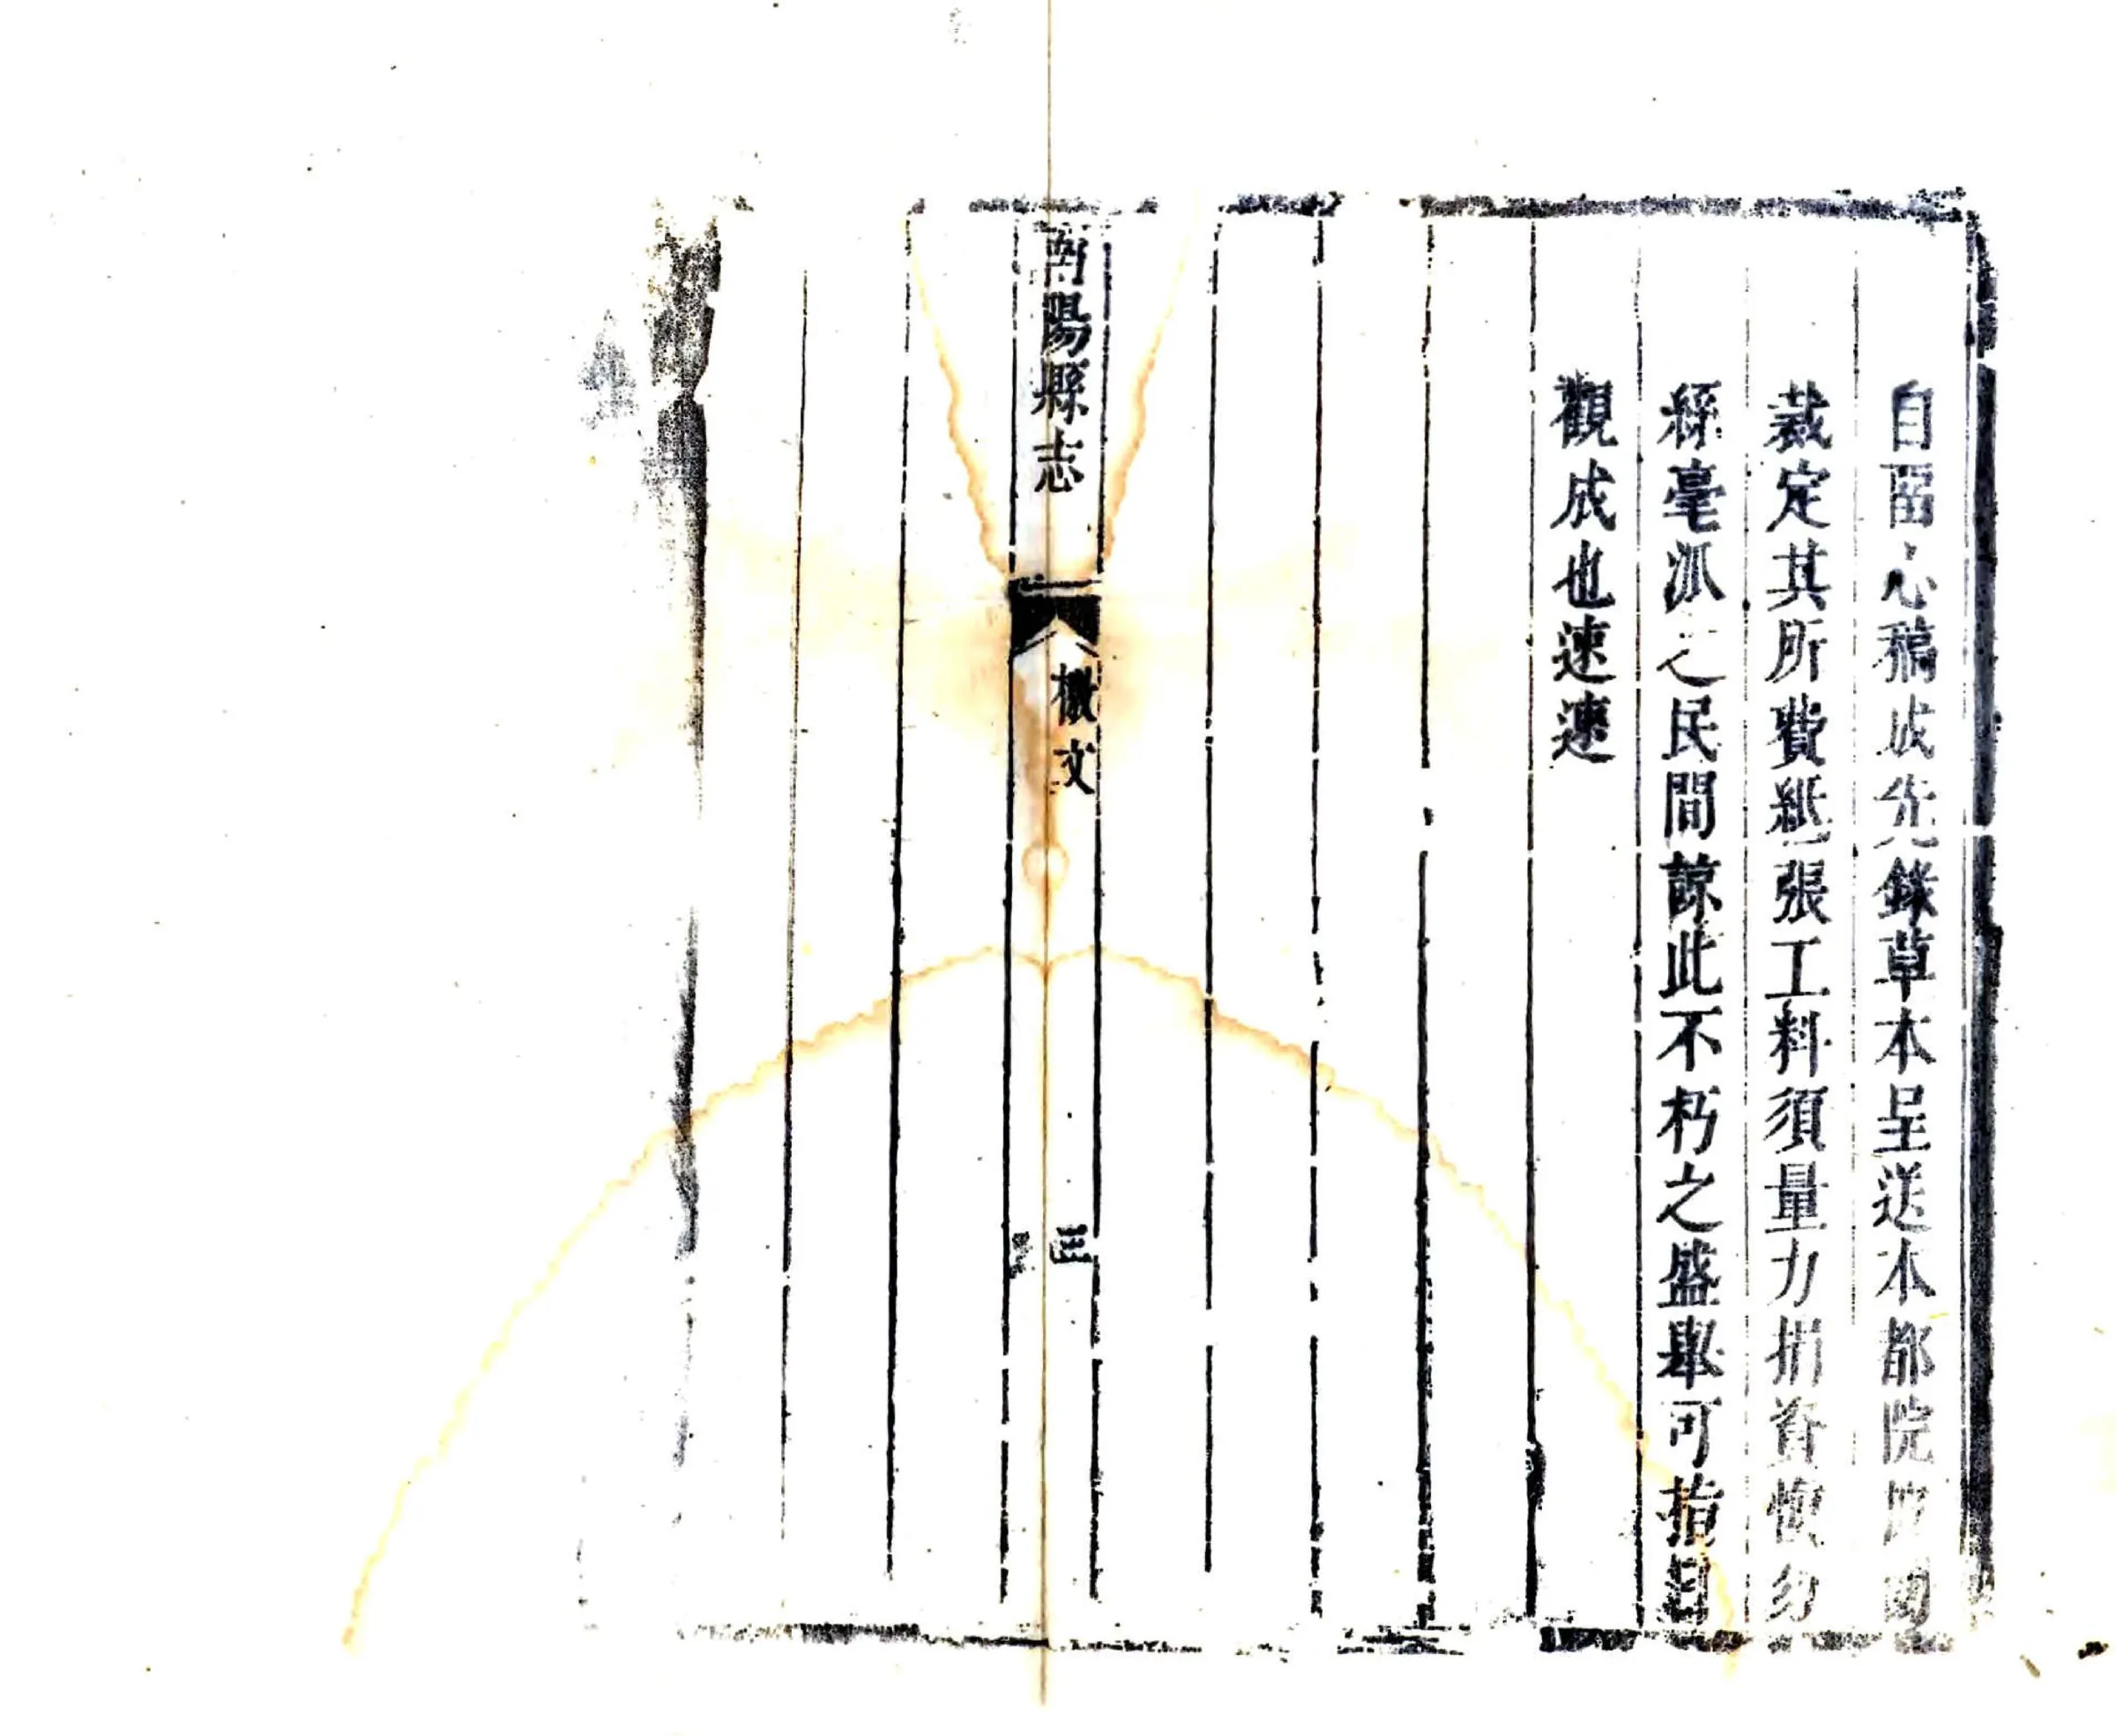 自留心稿成先錄草本呈送本都院
裁定其所費紙張工料須量力捐資慎勿
絲毫派之民間諒此不朽之盛舉可指日
觀成也速速
南陽縣志
檄文
三